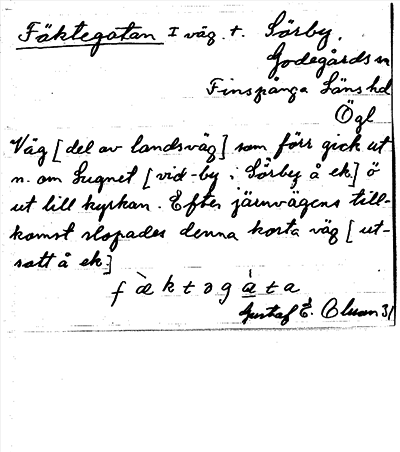 Fäktegatan I väg. t. Sörby,
Godegårds sn
Finspånga Läns hd
Ögl
Väg [del av landsväg] som förr gick ut
n. om Lugnet [vid -by i Sörby å ek.] ö
ut till kyrkan. Efter järnvägens till-
komst slopades denna korta väg [ut-
satt å ek.]
f æ̀ k t ə g á t a
Gustaf E. Olsson 31